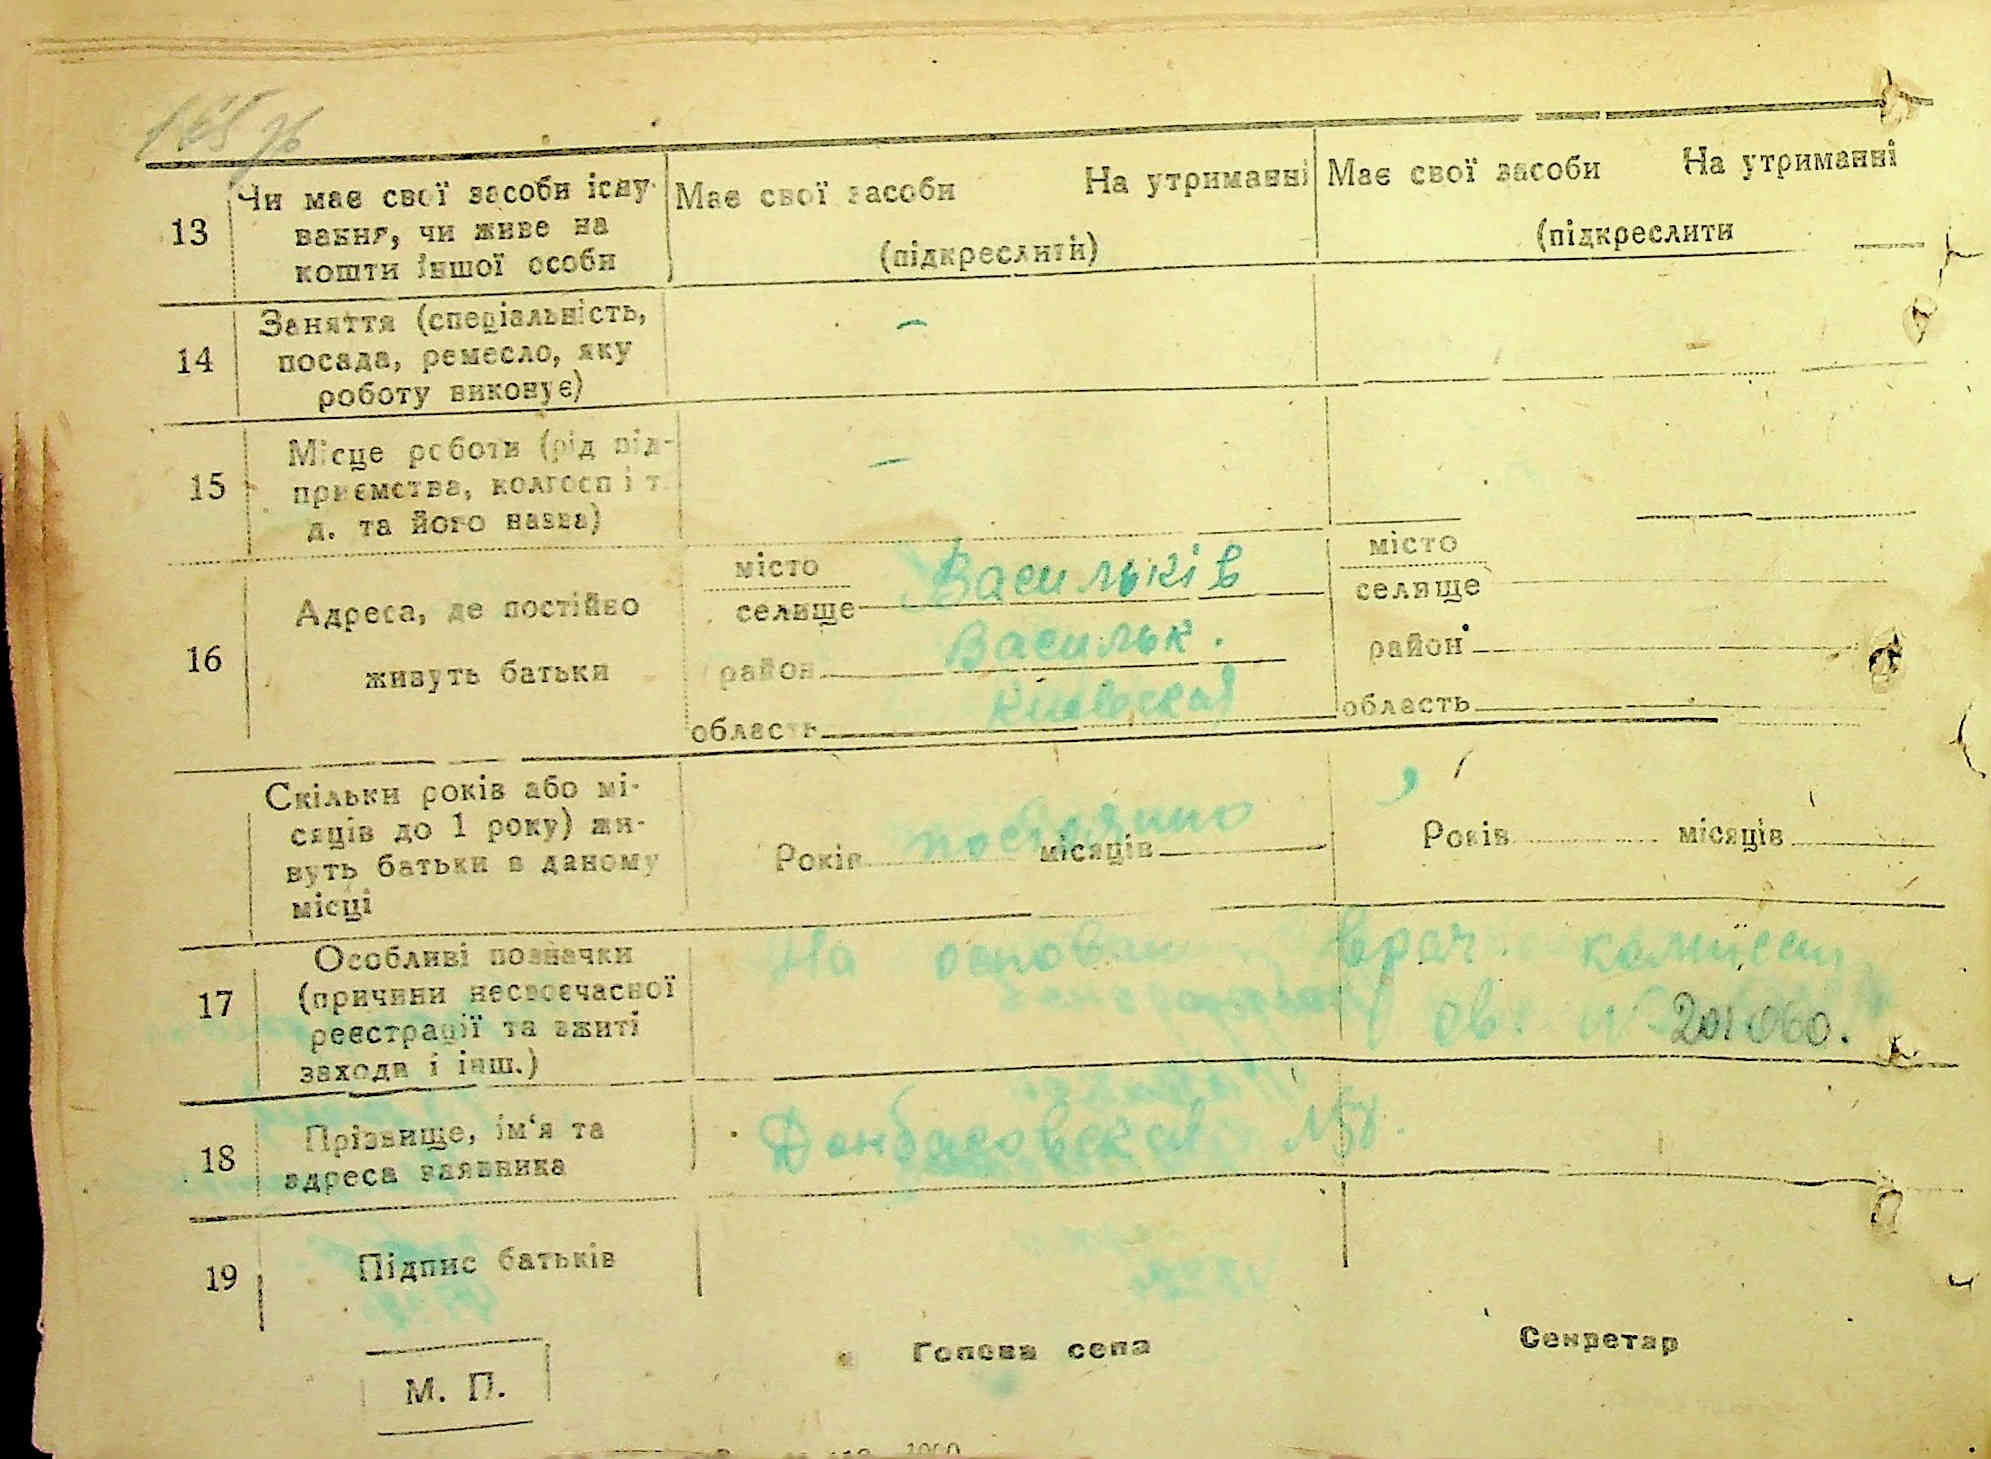 13 Чи має свої засоби існу- Має свої засоби На утриманні Має свої засоби На утриманні
вання, чи живе на
(підкреслити) (підкреслити
кошти іншої особи
Заняття (спеціальність, –
14 посада, ремесло, яку
роботу виконує)
Місце роботи (рід під- –
15 приємства, колгосп і т.
д. та його назва)
місто Васильків місто
Адреса, де постійно селище селище
16 Васильк.
живуть батьки район район
Киевская
область область
Скільки років або мі-
сяців до 1 року) жи- постоянно
вуть батьки в даному Років місяців Років місяців
місці
Особливі позначки На врач комиссии
17 (причини несвоєчасної
реєстрації та вжиті св. 201060.
заходи і інш.)
18 Прізвище, ім'я та Донбасовская
адреса заявника
19 Підпис батьків
Голова села Секретар
М. П.